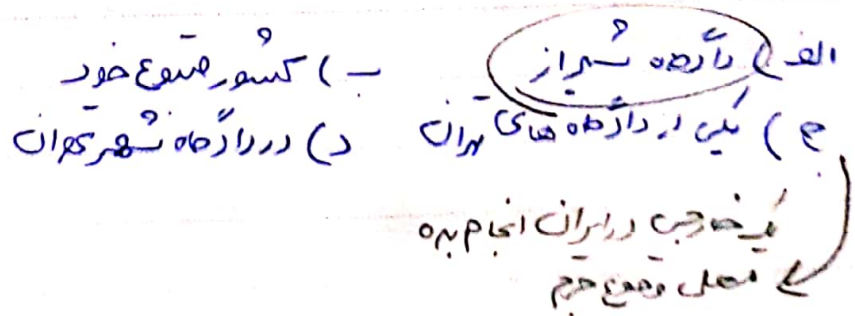 الف) دادگاه شیراز ب) کشور متبوع خود
ج) یکی از دادگاه های تهران د) در دادگاه شهر تهران
یک خارجی در ایران انجام بده
محل وقوع جرم